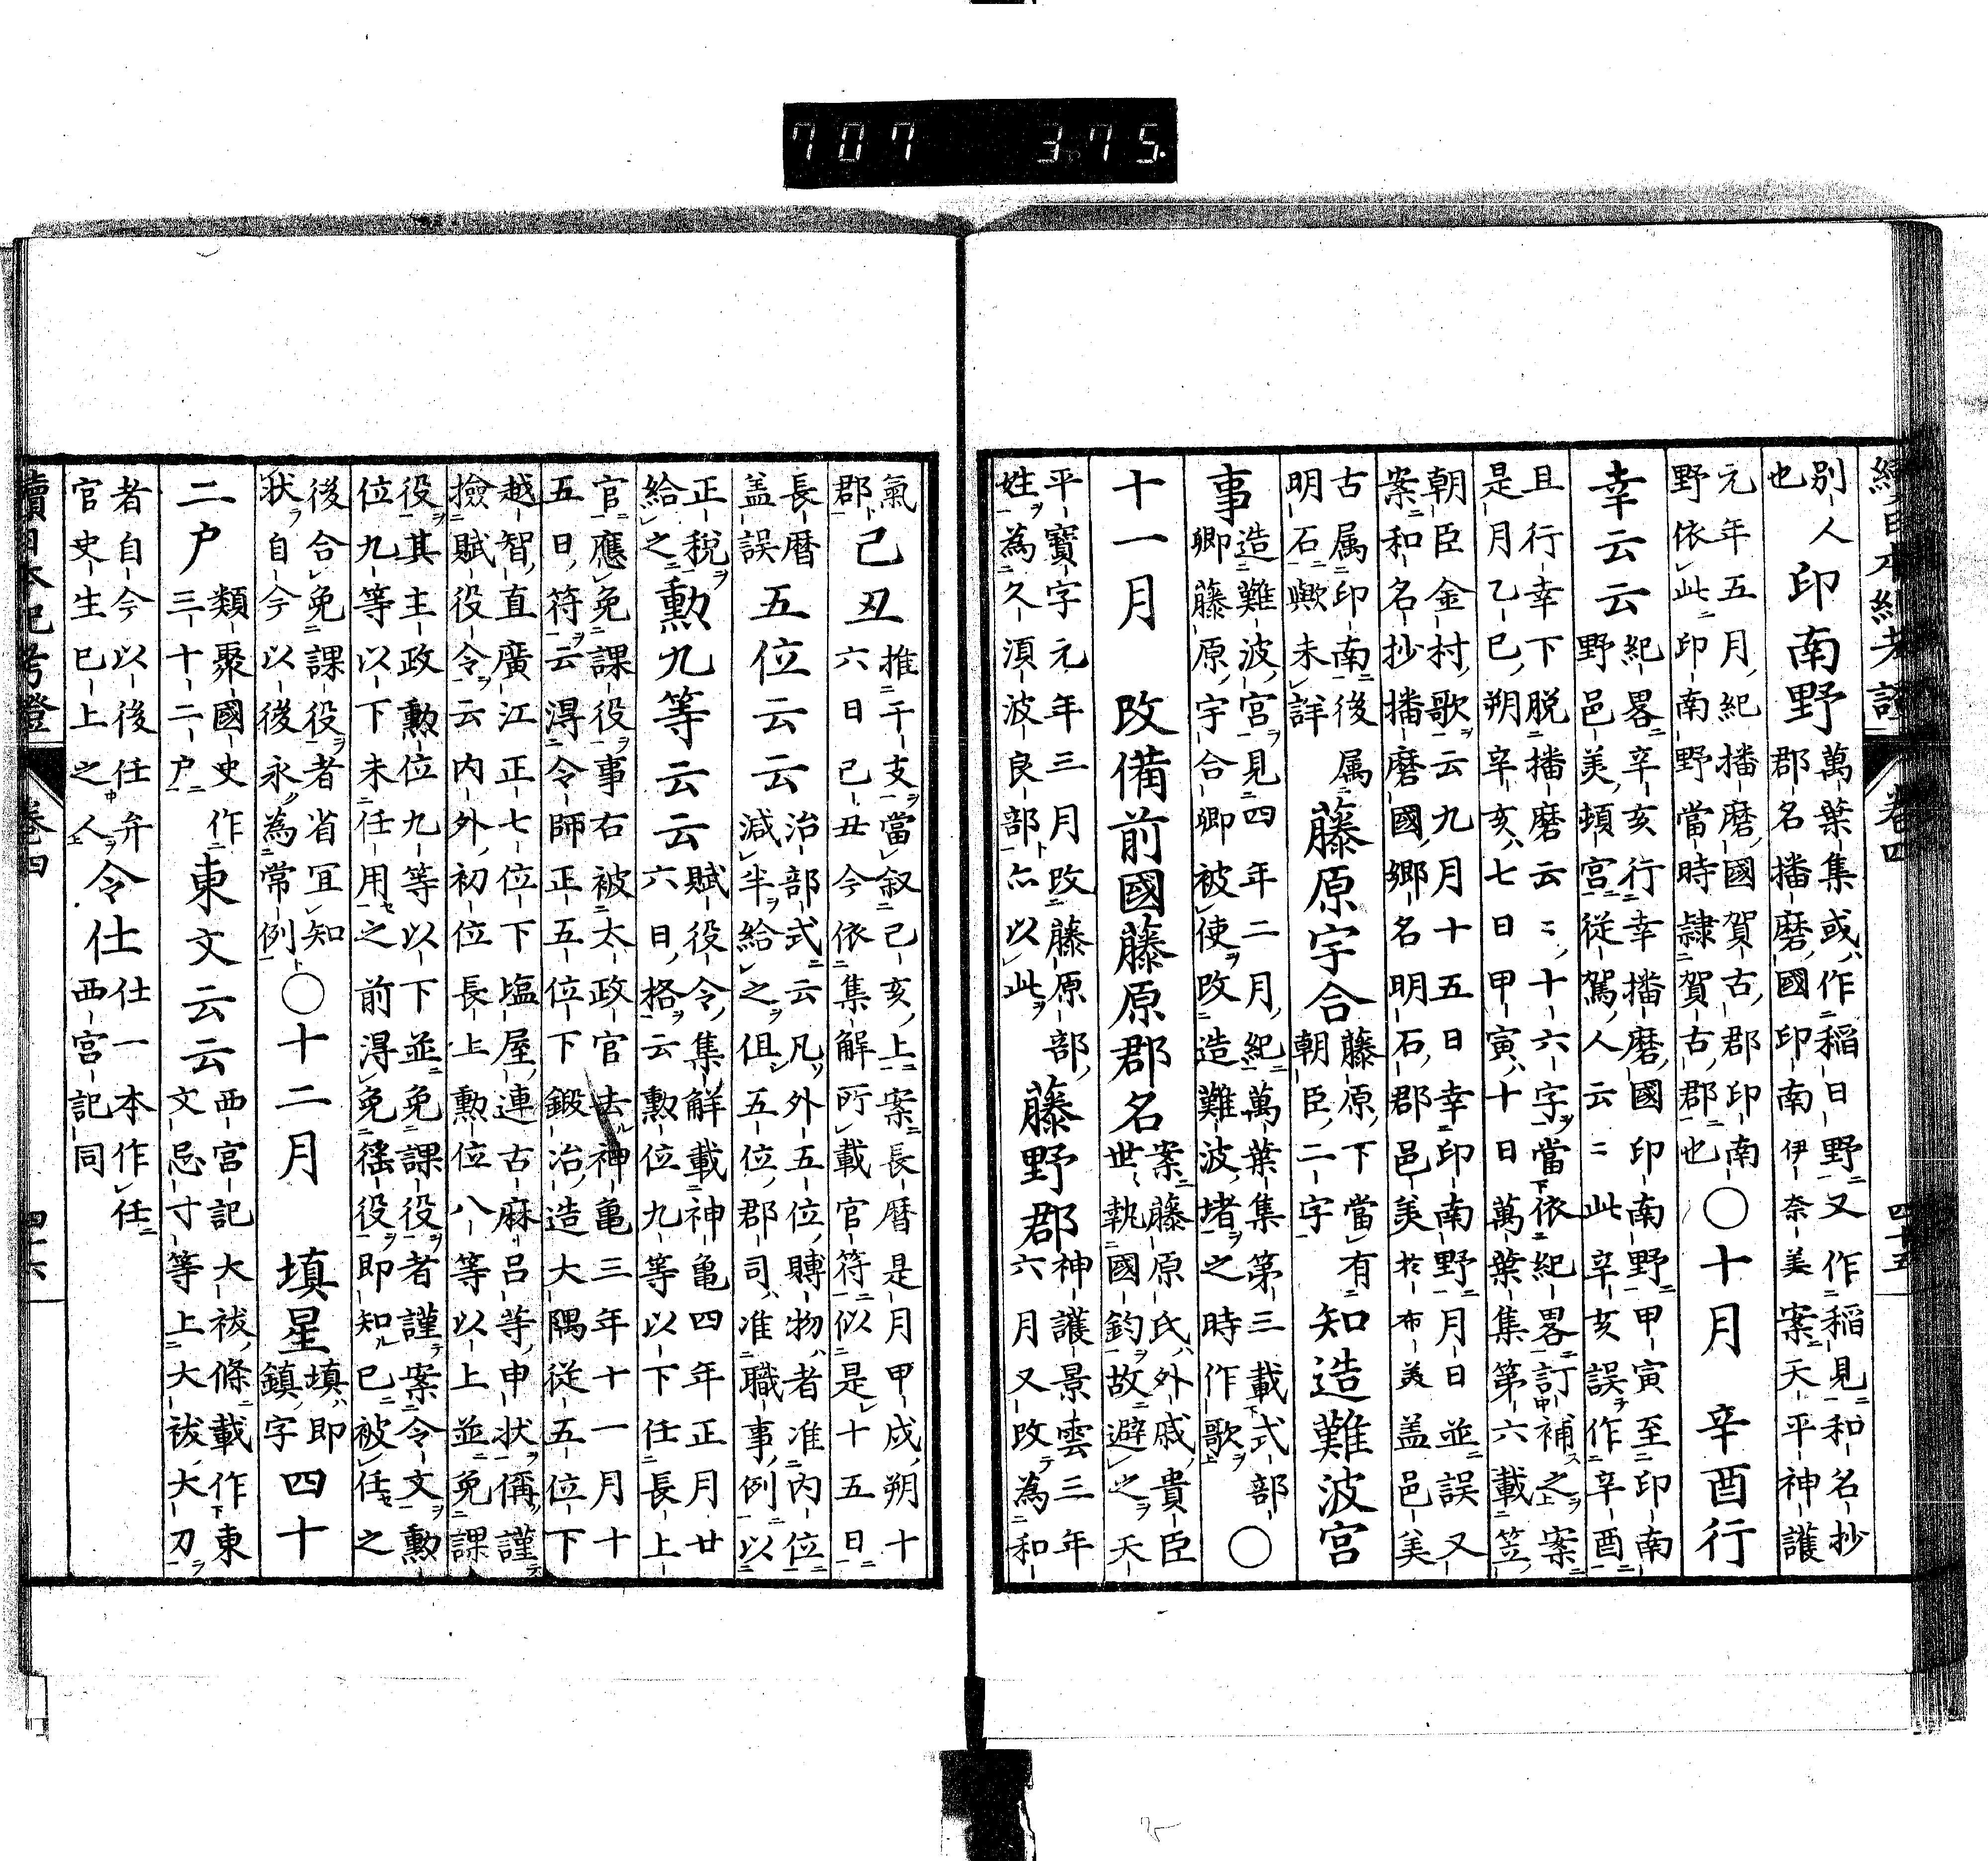 707 375.
續日本紀考證 卷四 四十五
別人印南野萬葉集或作稻日野又作稻見和名抄
也郡名播磨國印南伊奈美案天平神護
元年五月紀播磨國賀古郡印南
野依此印南野當時隷賀古郡也○十月 辛酉行
幸云云紀畧辛亥行幸播磨國印南野甲寅至印南
野邑美頓宮從駕人云〻此辛亥誤作辛酉
且行幸下脱播磨云〻十六字當依紀畧訂補之案
是月乙巳朔辛亥七日甲寅十日萬葉集第六載笠
朝臣金村歌云九月十五日幸印南野月日並誤又
案和名抄播磨國鄉名明石郡邑美於布美盖邑美
古属印南後属
明石歟未詳藤原宇合藤原下當有
朝臣二字知造難波宮
事造難波宮見四年二月紀萬葉集第三載式部
卿藤原宇合卿被使改造難波堵之時作歌○
十一月 改備前國藤原郡名案藤原氏外戚貴臣
世〻執國鈞故避之天
平寶字元年三月改藤原部
姓為久須波良部亦以此藤野郡神護景雲三年
六月又改為和
氣
郡己丑推干支當叙己亥上案長曆是月甲戌朔十
六日己丑今依集解所載官符似是十五日
長曆
盖誤五位云云治部式云凡外五位賻物者准内位
減半給之但五位郡司准職事例以
正税
給之勲九等云云賦役令集解載神亀四年正月廿
六日格云勲位九等以下任長上
官應免課役事右被太政官去神亀三年十一月十
五日符云得令師正五位下鍛冶造大隅從五位下
越智直廣江正七位下塩屋連古麻呂等申状偁謹
撿賦役令云内外初位長上勲位八等以上並免課
役其主政勲位九等以下並免課役者謹案令文勲
位九等以下未任用之前得免徭役即知已被任之
後合免課役者省宜知
状自今以後永為常例○十二月 填星填即
鎮字四十
二戸類聚國史作
三十二戸東文云云西宮記大祓條載作東
文忌寸等上大祓大刀
者自今以後任弁
官史生已上之人令仕仕一本作任
西宮記同
續日本紀考證 卷四 四十六